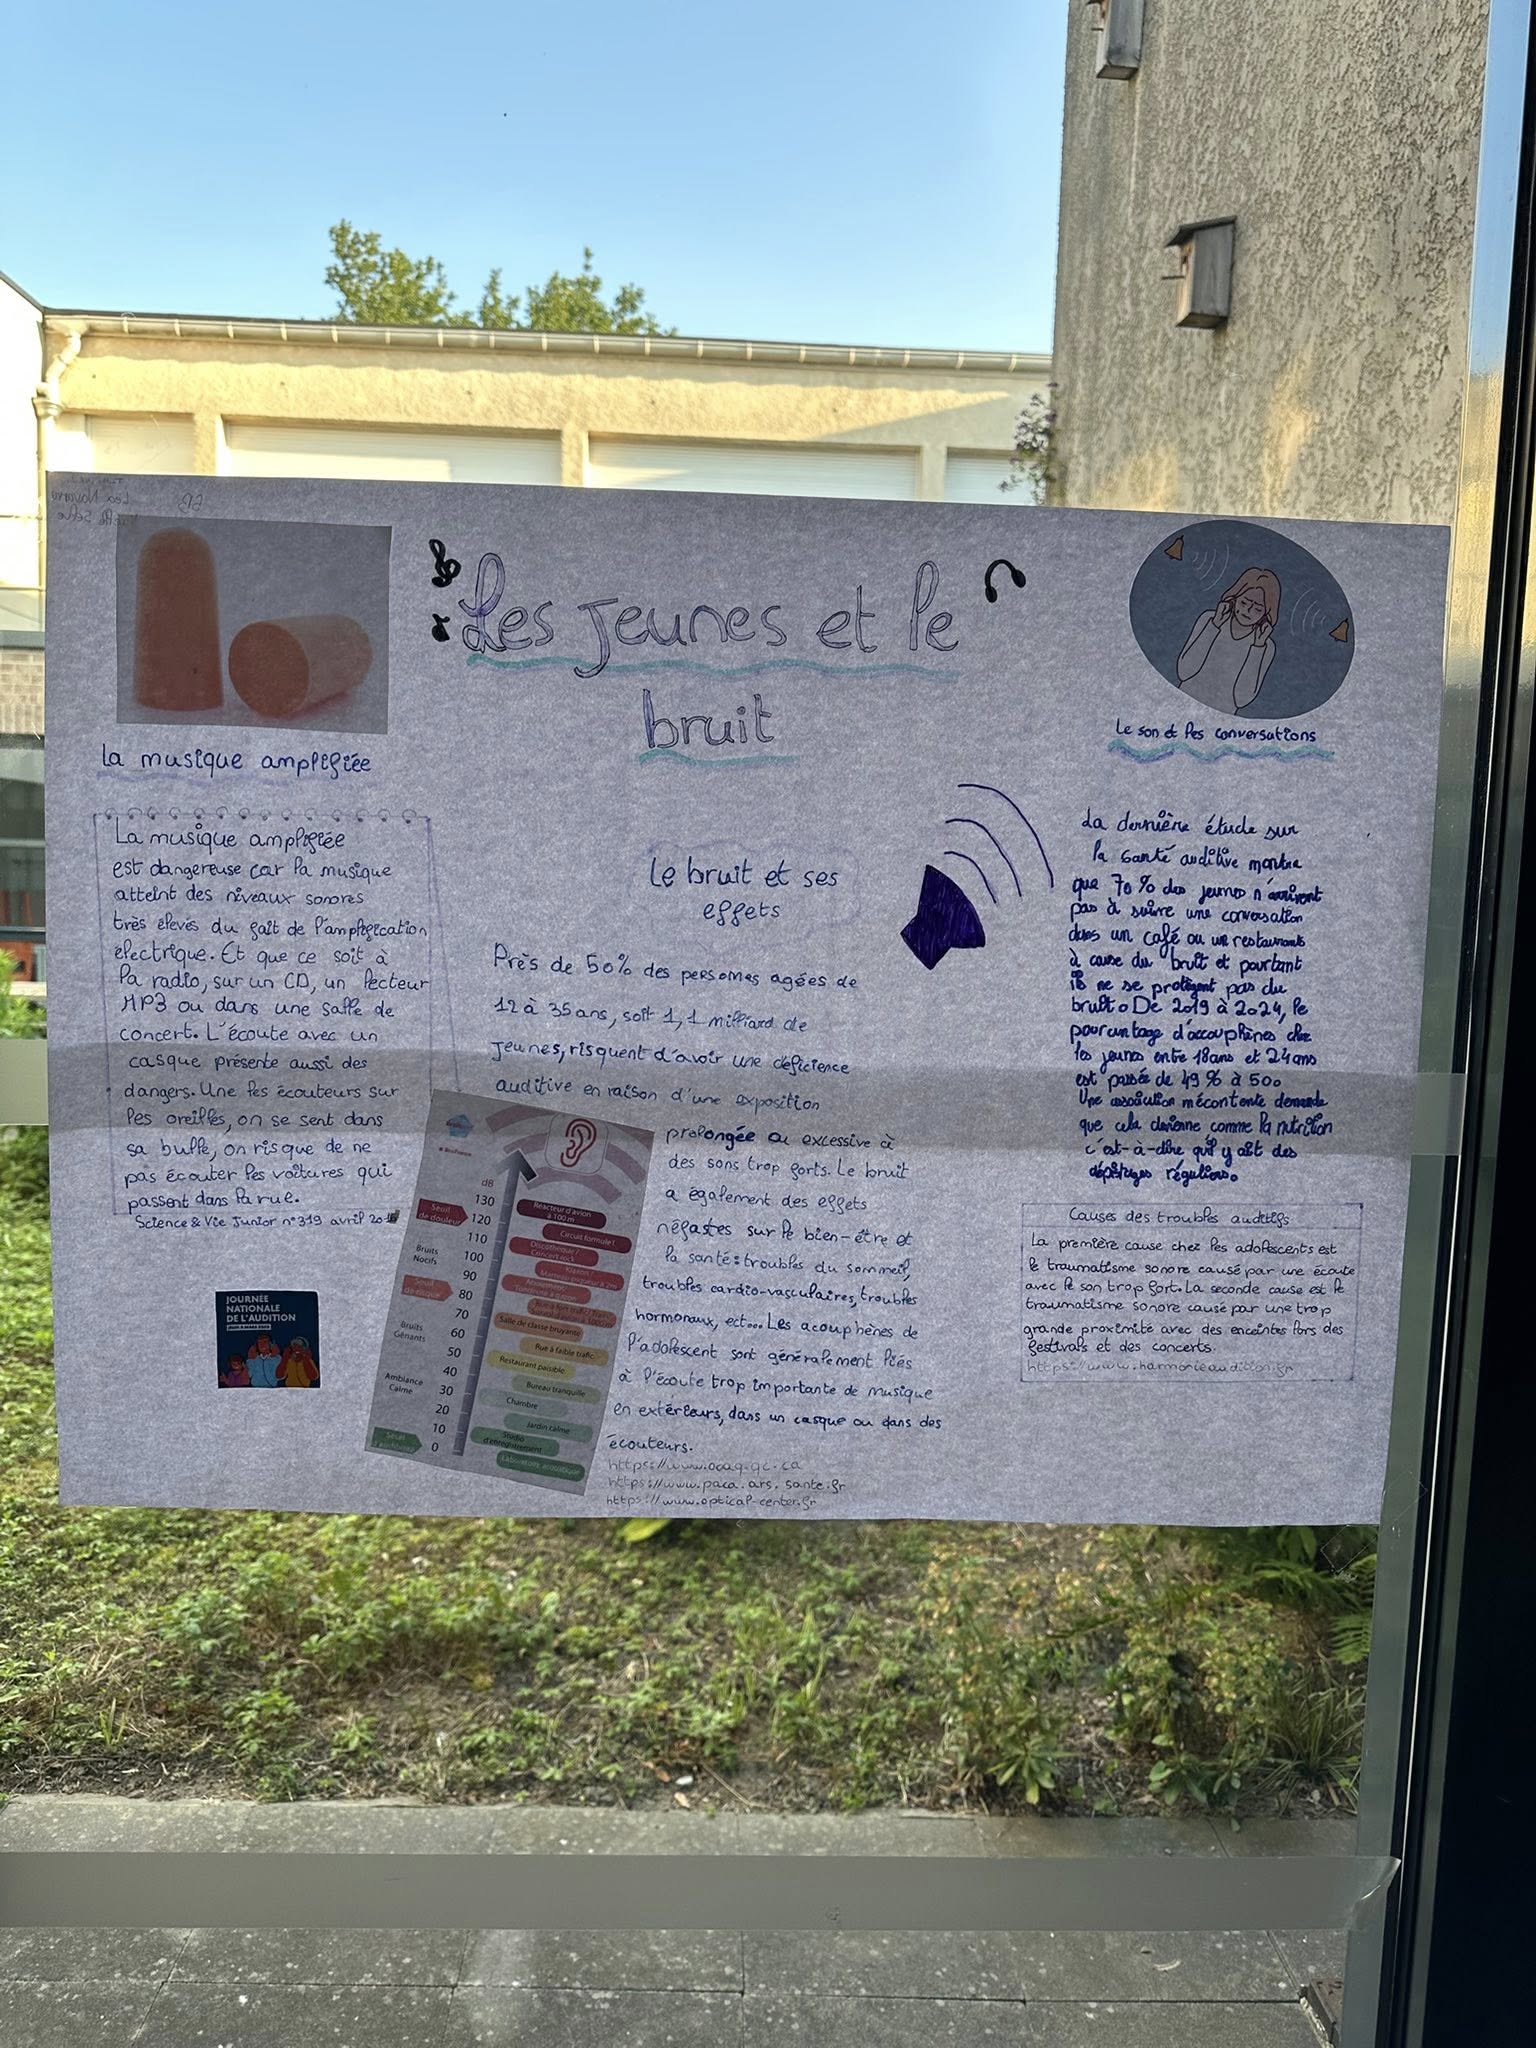 Les jeunes et le
bruit
la musique amplifiée
La musique amplifiée
est dangereuse car la musique
atteint des niveaux sonores
très élevés du fait de l'amplification
électrique. Et que ce soit à
la radio, sur un CD, un lecteur
MP3 ou dans une salle de
concert. L'écoute avec un
casque présente aussi des
dangers. Une fes écouteurs sur
les oreilles, on se sent dans
sa bulle, on risque de ne
pas écouter les voitures qui
passent dans la rue.
Science & Vie Junior n°319 avril
JOURNÉE
NATIONALE
DE L'AUDITION
Le bruit et ses
effets
Près de 50% des personnes agées de
12 à 35 ans, soit 1,1 milliard de
jeunes, risquent d'avoir une déficience
auditive en raison d'une exposition
prolongée ou excessive à
des sons trop forts. Le bruit
a également des effets
néfastes sur le bien-être et
la santé: troubles du sommeil,
troubles cardio-vasculaires, troubles
hormonaux, ect... Les acouphènes de
l'adolescent sont généralement liés
à l'écoute trop importante de musique
en extérieurs, dans un casque ou dans des
écouteurs.
https://www.ooaq.qc.ca
https://www.paca.ars.sante.fr
https://www.optical-center.fr
dB
130
Seuil
de douleur
120
110
Bruits
Nocifs
100
90
Seuil
de risque
80
70
Bruits
Gênants
60
50
40
Ambiance
Calme
30
20
10
Seuil
0
Réacteur d'avion
à 100 m
Circuit formule 1
Discothèque /
Concert rock
Salle de classe bruyante
Rue à faible trafic
Restaurant paisible
Bureau tranquille
Chambre
Jardin calme
Studio
d'enregistrement
Laboratoire acoustique
Le son et les conversations
La dernière étude sur
la santé auditive montre
que 70 % des jeunes n'arrivent
pas à suivre une conversation
dans un café ou un restaurants
à cause du bruit et pourtant
ils ne se protègent pas du
bruit. De 2019 à 2024, le
pourcuntage d'accouphènes chez
les jeunes entre 18 ans et 24 ans
est passée de 49 % à 50.
Une association mécontente demande
que cela devienne comme la nutrition
c'est-à-dire qu'il y ait des
dépistages réguliers.
Causes des troubles auditifs
La première cause chez les adolescents est
le traumatisme sonore causé par une écoute
avec le son trop fort. La seconde cause est le
traumatisme sonore causé par une trop
grande proximité avec des enceintes lors des
festivals et des concerts.
https://www.harmonieaudition.fr